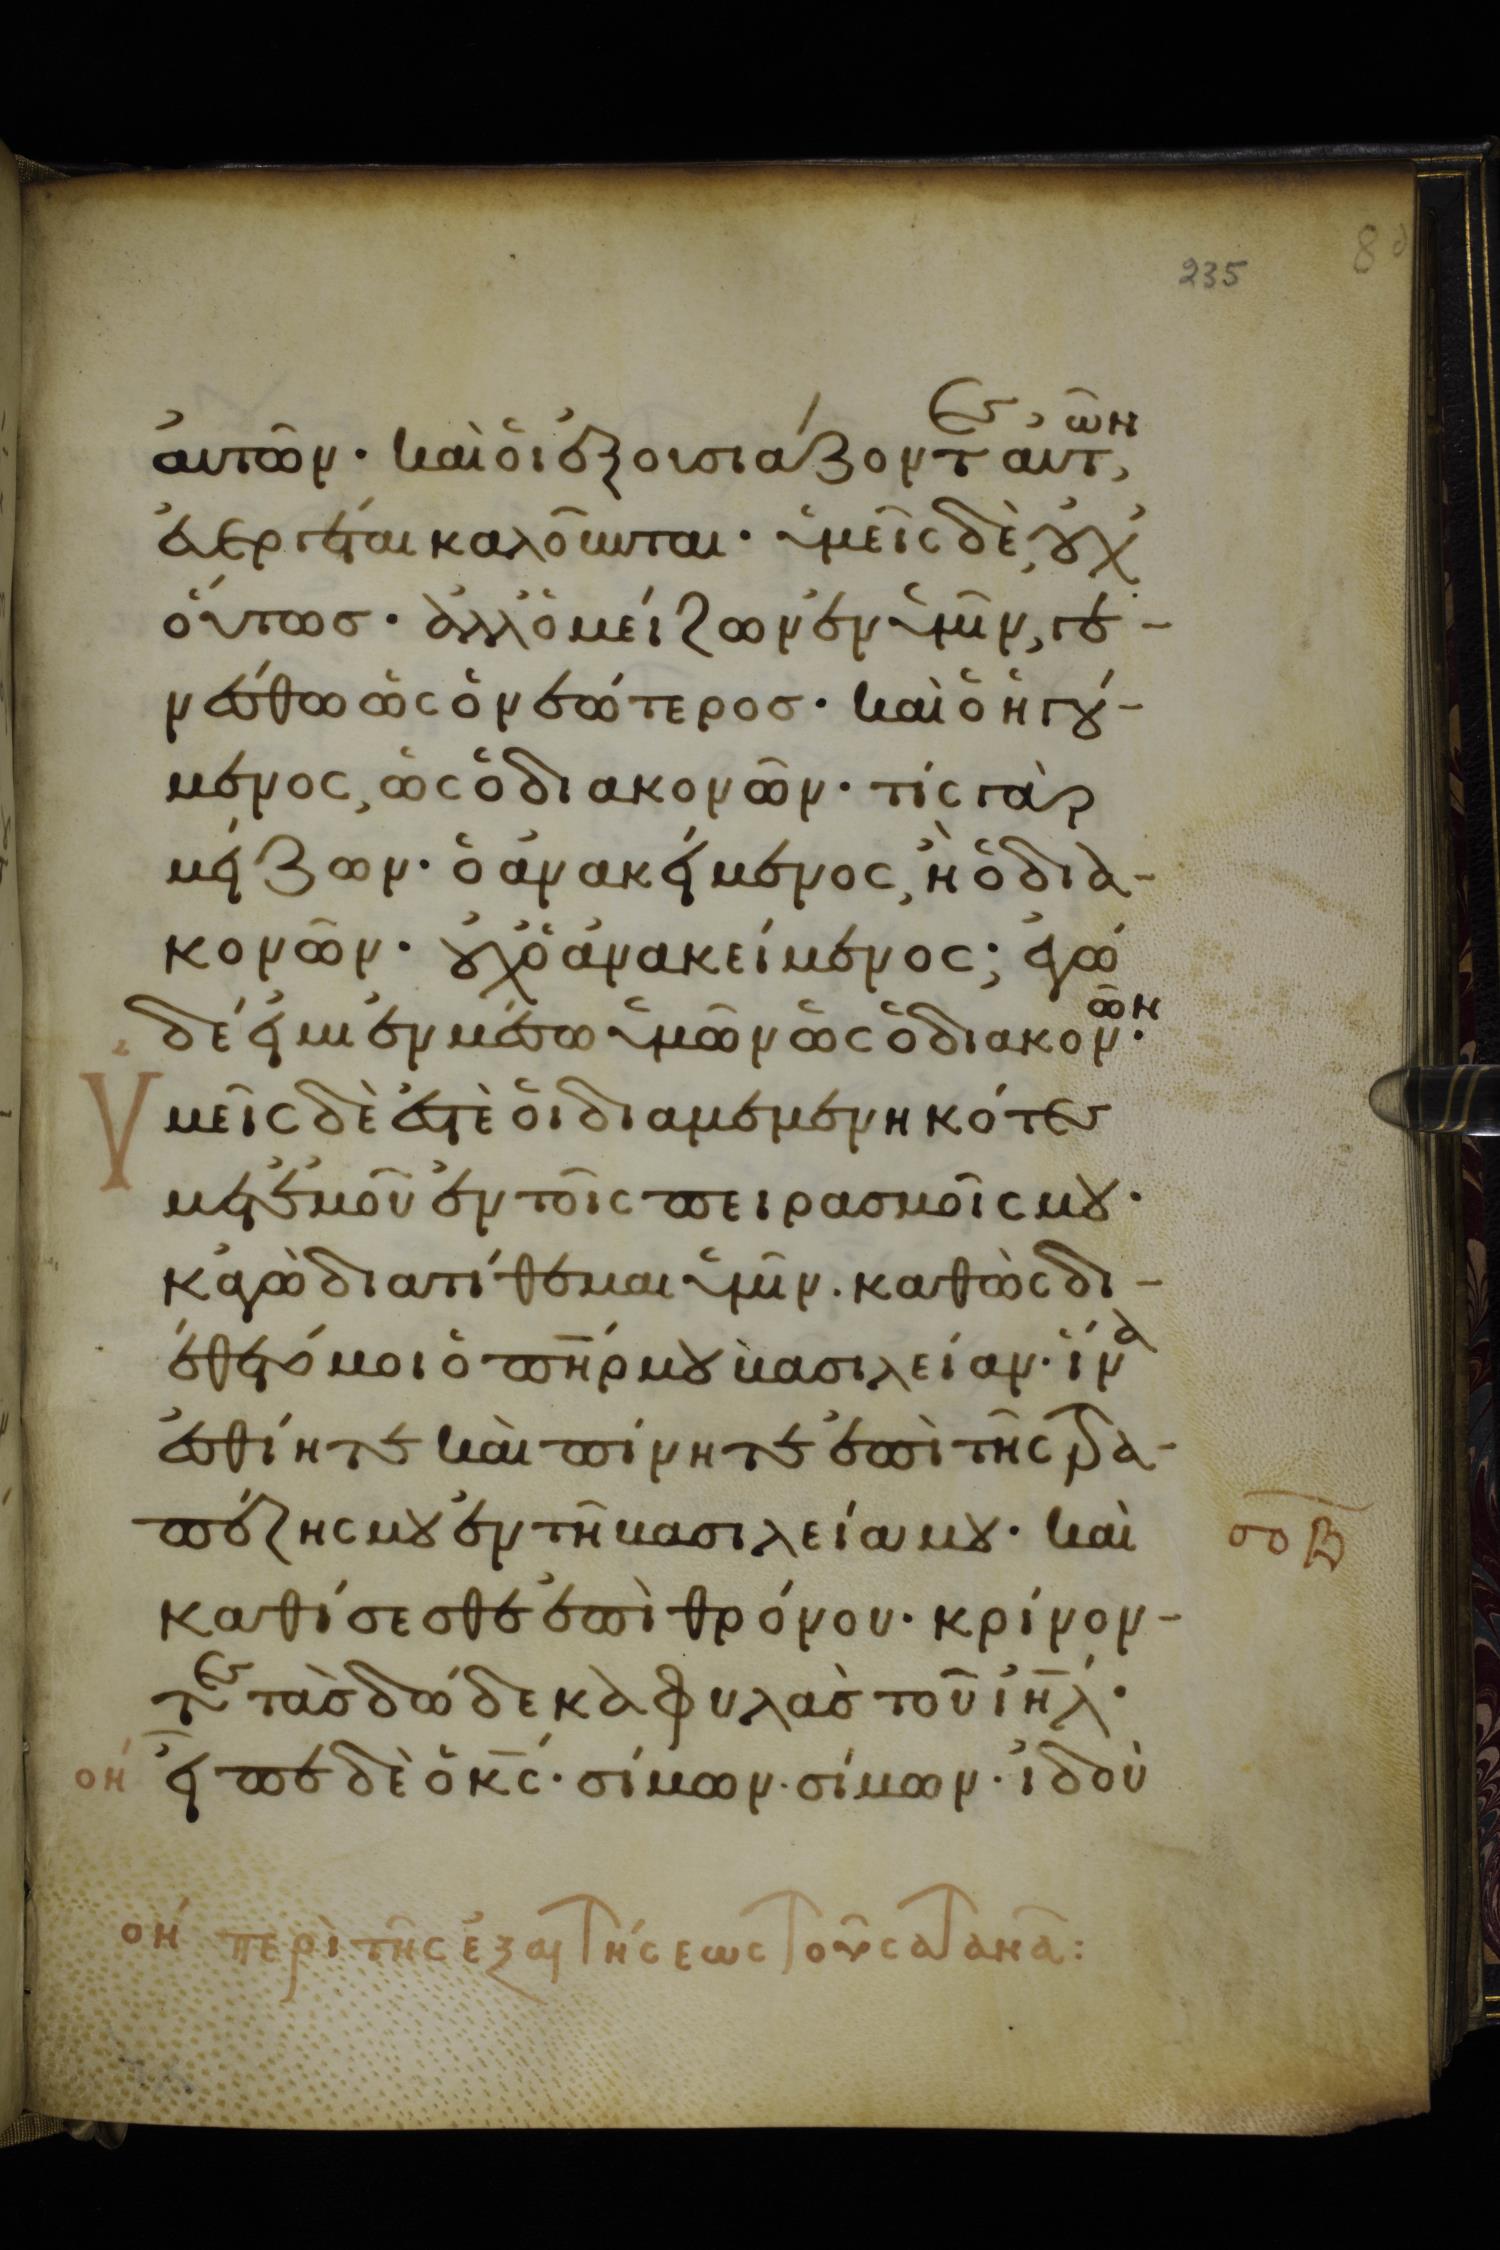 235
αὐτῶν· καὶ οἱ ἐξουσιάζοντες αὐτῶν,
εὐεργέται καλοῦνται· ὑμεῖς δὲ, οὐχ
οὕτως· ἀλλ' ὁ μείζων ἐν ὑμῖν, γε-
νέσθω ὡς ὁ νεώτερος· καὶ ὁ ἡγού-
μενος, ὡς ὁ διακονῶν· τίς γὰρ
μείζων· ὁ ἀνακείμενος, ἢ ὁ δια-
κονῶν· οὐχ ὁ ἀνακείμενος; ἐγώ
δέ εἰμι ἐν μέσω ὑμῶν ὡς ὁ διακονῶν·
Ὑμεῖς δὲ ἐστὲ οἱ διαμεμενηκότες
μετ' ἐμοῦ ἐν τοῖς πειρασμοῖς μου·
κἀγὼ διατίθεμαι ὑμῖν· καθὼς δι-
έθετό μοι ὁ πηρ μου βασιλείαν· ἵνα
ἐσθίητε καὶ πίνητε ἐπὶ τῆς τρα-
πέζης μου ἐν τῆ βασιλεία μου· καὶ
σοβ
καθίσεσθε ἐπὶ θρόνου· κρίνον-
τες τὰς δώδεκα φυλὰς τοῦ ιηλ·
οη εἶπε δὲ ὁ κς· σίμων· σίμων· ἰδοὺ
οη περὶ τῆς ἐξαιτήσεως τοῦ σατανᾶ: